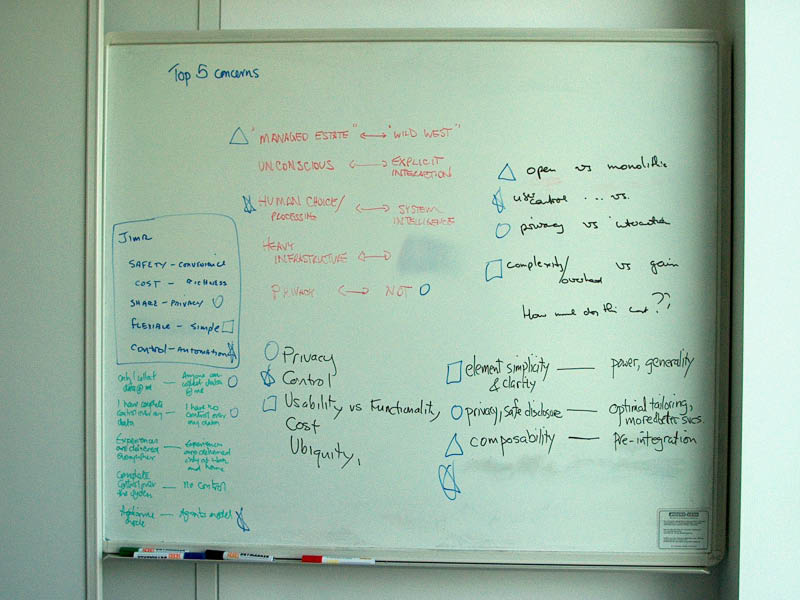 Top 5 concerns
"MANAGED ESTATE" ↔ "WILD WEST"
UNCONSCIOUS ↔ EXPLICIT
INTERACTION
HUMAN CHOICE/ ↔ SYSTEM
PROCESSING INTELLIGENCE
HEAVY
INFRASTRUCTURE ↔
PRIVACY ↔ NOT
open vs monolithic
user
control ... vs.
privacy vs interaction
complexity/ vs gain
overhead
How much does this cost??
SAFETY - CONVENIENCE
COST - RICHNESS
SHARE - PRIVACY
FLEXIBLE - Simple
Control - AUTOMATION
Only I collect — Anyone can
data @ me collect data
@ me
I have complete — I have no
control over my control over
data my data
Experiences — Experiences
are delivered are delivered
only at
and home
Complete — No control
control over
the system
Appliance — Agent model
Privacy
Control
Usability vs Functionality
Cost
Ubiquity,
element simplicity — power, generality
& clarity
privacy, safe disclosure — optimal tailoring,
more/better svcs.
composability — pre-integration